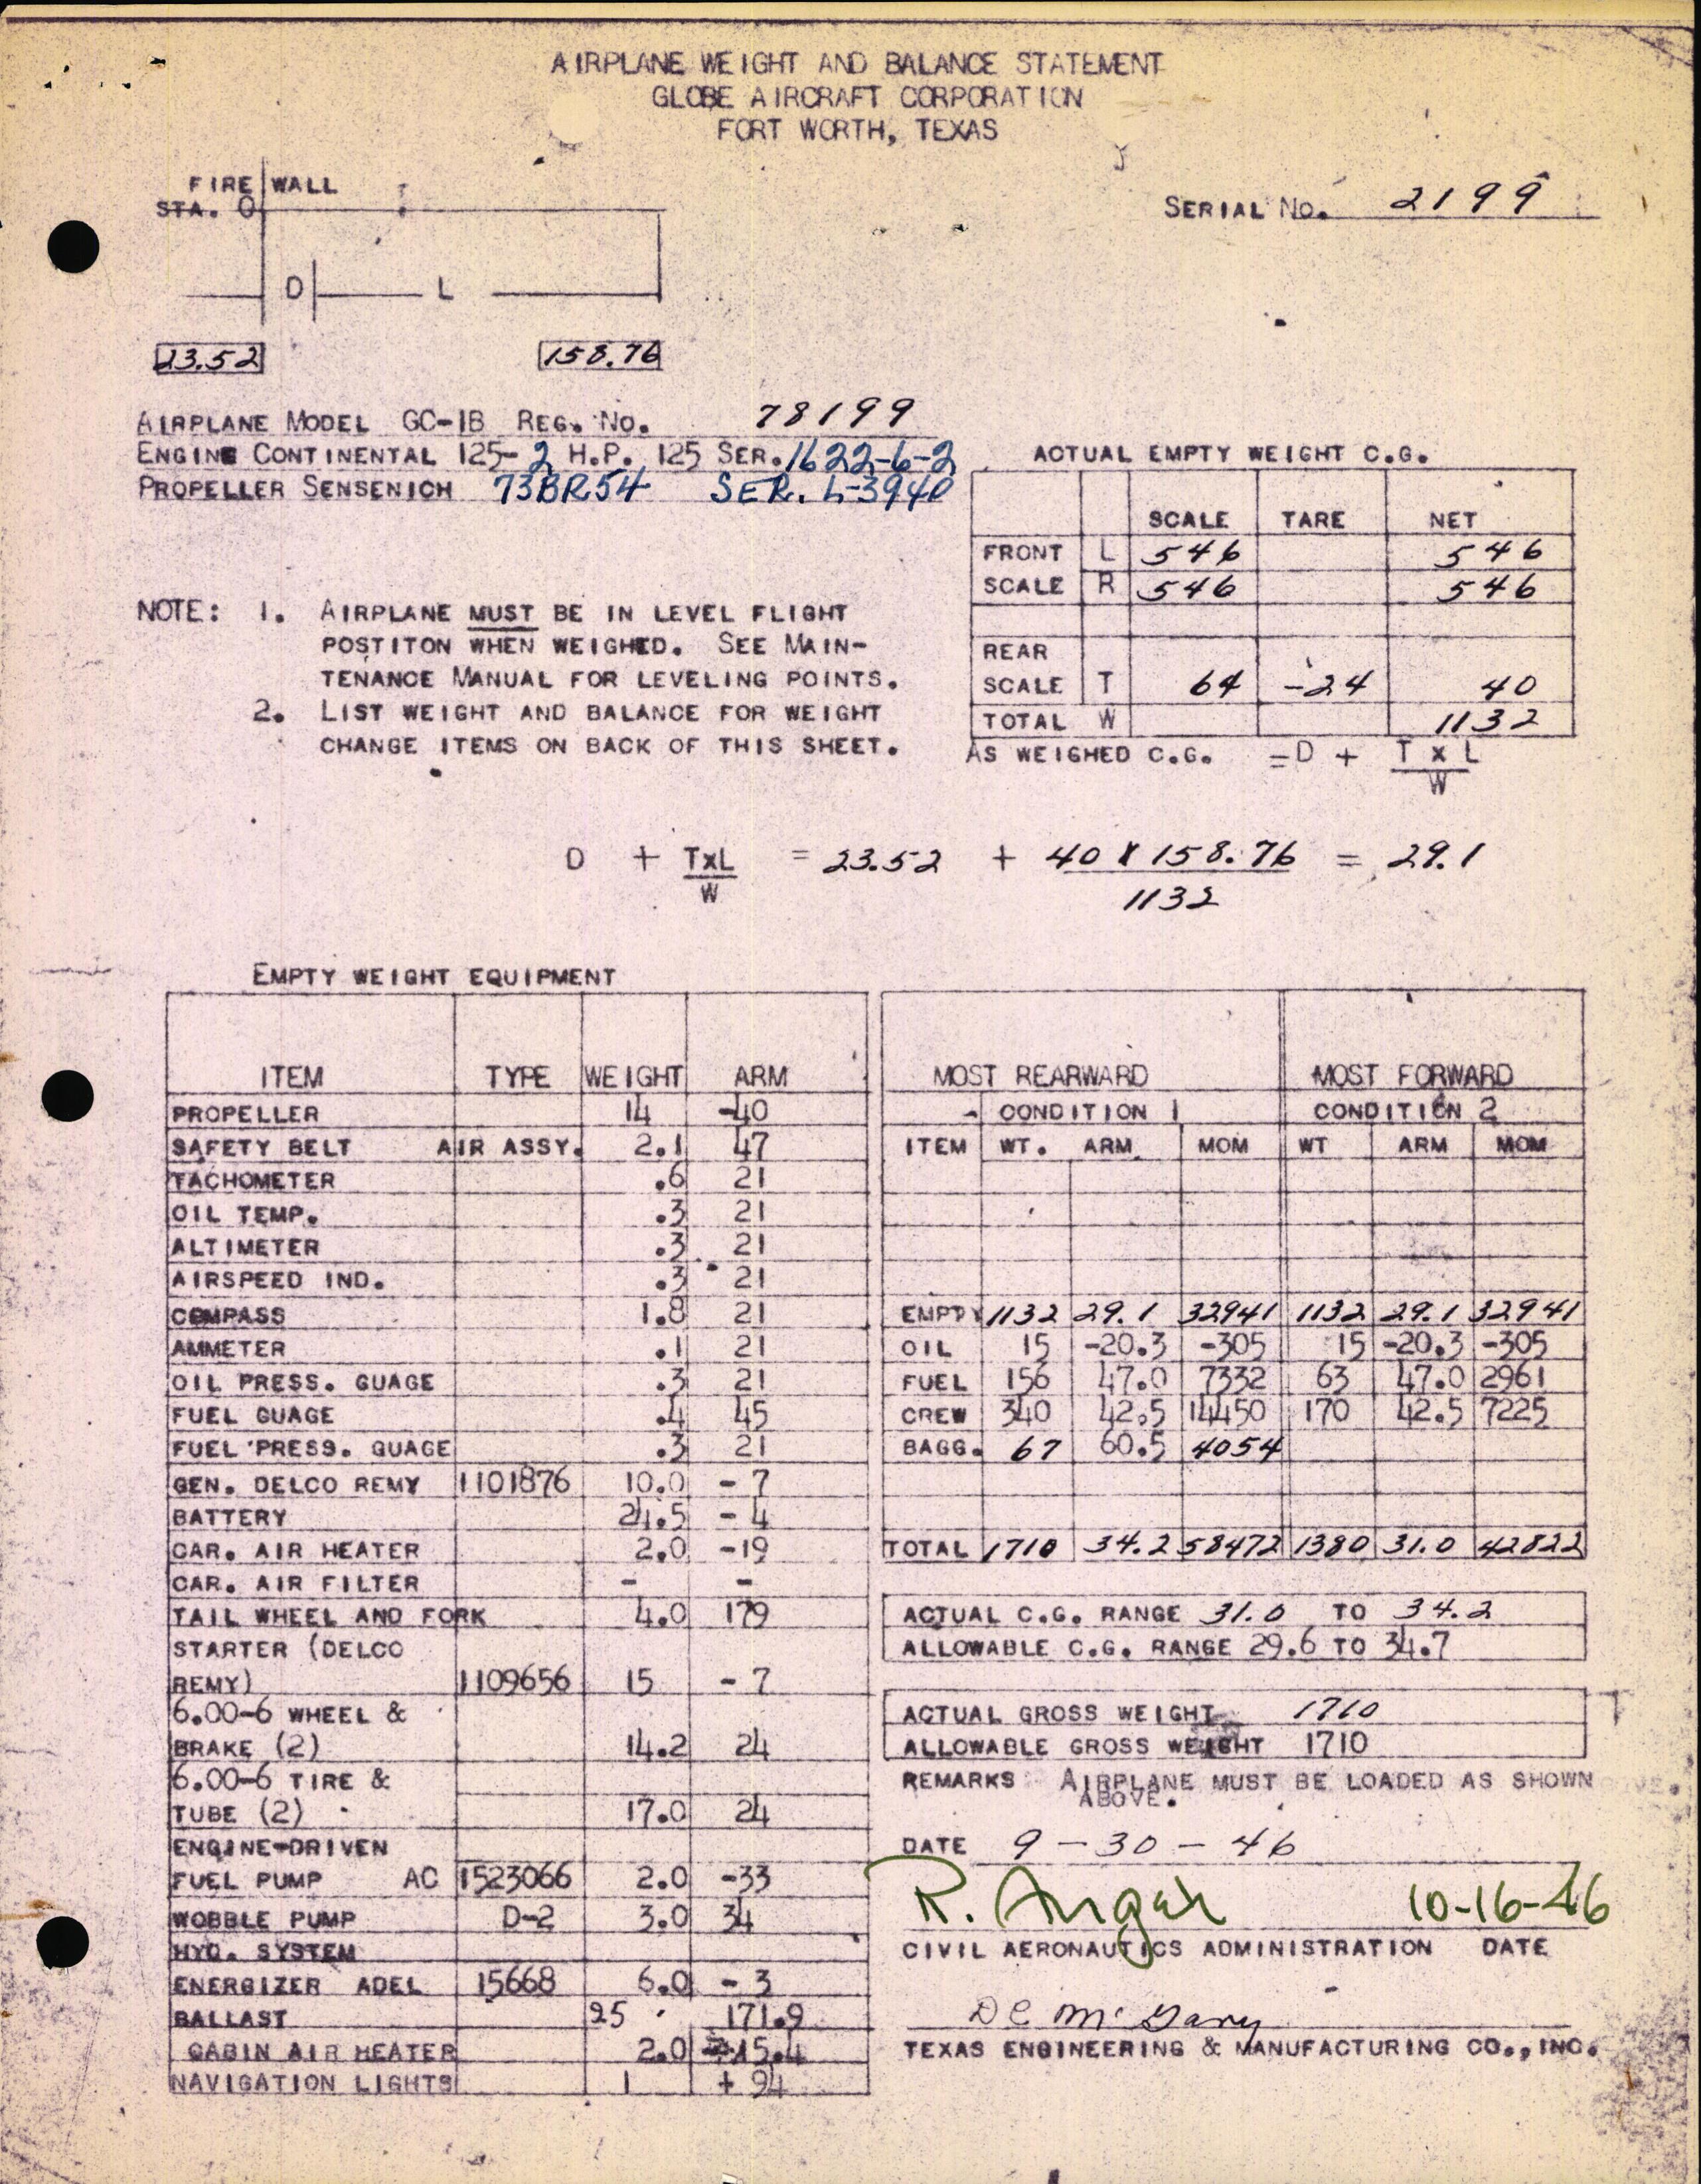 AIRPLANE WEIGHT AND BALANCE STATEMENT
GLOBE AIRCRAFT CORPORATION
FORT WORTH, TEXAS
FIRE WALL
STA. 0
SERIAL NO. 2199
D L
23.52 158.76
AIRPLANE MODEL GC-1B REG. NO. 78199
ENGINE CONTINENTAL 125-2 H.P. 125 SER. 1622-6-2
PROPELLER SENSENICH 73BR54 SER. L-3940
ACTUAL EMPTY WEIGHT C.G.
SCALE TARE NET
FRONT L 546 546
SCALE R 546 546
REAR
SCALE T 64 -24 40
TOTAL W 1132
AS WEIGHED C.G. = D + T X L
W
NOTE: 1. AIRPLANE MUST BE IN LEVEL FLIGHT
POSTITON WHEN WEIGHED. SEE MAIN-
TENANCE MANUAL FOR LEVELING POINTS.
2. LIST WEIGHT AND BALANCE FOR WEIGHT
CHANGE ITEMS ON BACK OF THIS SHEET.
D + TxL = 23.52 + 40 X 158.76 = 29.1
W 1132
EMPTY WEIGHT EQUIPMENT
ITEM TYPE WEIGHT ARM
PROPELLER 14 -40
SAFETY BELT AIR ASSY. 2.1 47
TACHOMETER .6 21
OIL TEMP. .3 21
ALTIMETER .3 21
AIRSPEED IND. .3 21
COMPASS 1.8 21
AMMETER .1 21
OIL PRESS. GUAGE .3 21
FUEL GUAGE .4 45
FUEL PRESS. GUAGE .3 21
GEN. DELCO REMY 1101876 10.0 - 7
BATTERY 24.5 - 4
CAR. AIR HEATER 2.0 -19
CAR. AIR FILTER - -
TAIL WHEEL AND FORK 4.0 179
STARTER (DELCO
REMY) 1109656 15 - 7
6.00-6 WHEEL &
BRAKE (2) 14.2 24
6.00-6 TIRE &
TUBE (2) 17.0 24
ENGINE-DRIVEN
FUEL PUMP AC 1523066 2.0 -33
WOBBLE PUMP D-2 3.0 34
HYD. SYSTEM
ENERGIZER ADEL 15668 6.0 - 3
BALLAST 25 171.9
CABIN AIR HEATER 2.0 15.4
NAVIGATION LIGHTS 1 + 94
MOST REARWARD MOST FORWARD
- CONDITION 1 CONDITION 2
ITEM WT. ARM MOM WT ARM MOM
EMPTY 1132 29.1 32941 1132 29.1 32941
OIL 15 -20.3 -305 15 -20.3 -305
FUEL 156 47.0 7332 63 47.0 2961
CREW 340 42.5 14450 170 42.5 7225
BAGG. 67 60.5 4054
TOTAL 1710 34.2 58472 1380 31.0 42822
ACTUAL C.G. RANGE 31.0 TO 34.2
ALLOWABLE C.G. RANGE 29.6 TO 34.7
ACTUAL GROSS WEIGHT 1710
ALLOWABLE GROSS WEIGHT 1710
REMARKS AIRPLANE MUST BE LOADED AS SHOWN
ABOVE.
DATE 9-30-46
R. 10-16-46
CIVIL AERONAUTICS ADMINISTRATION DATE
TEXAS ENGINEERING & MANUFACTURING CO., INC.